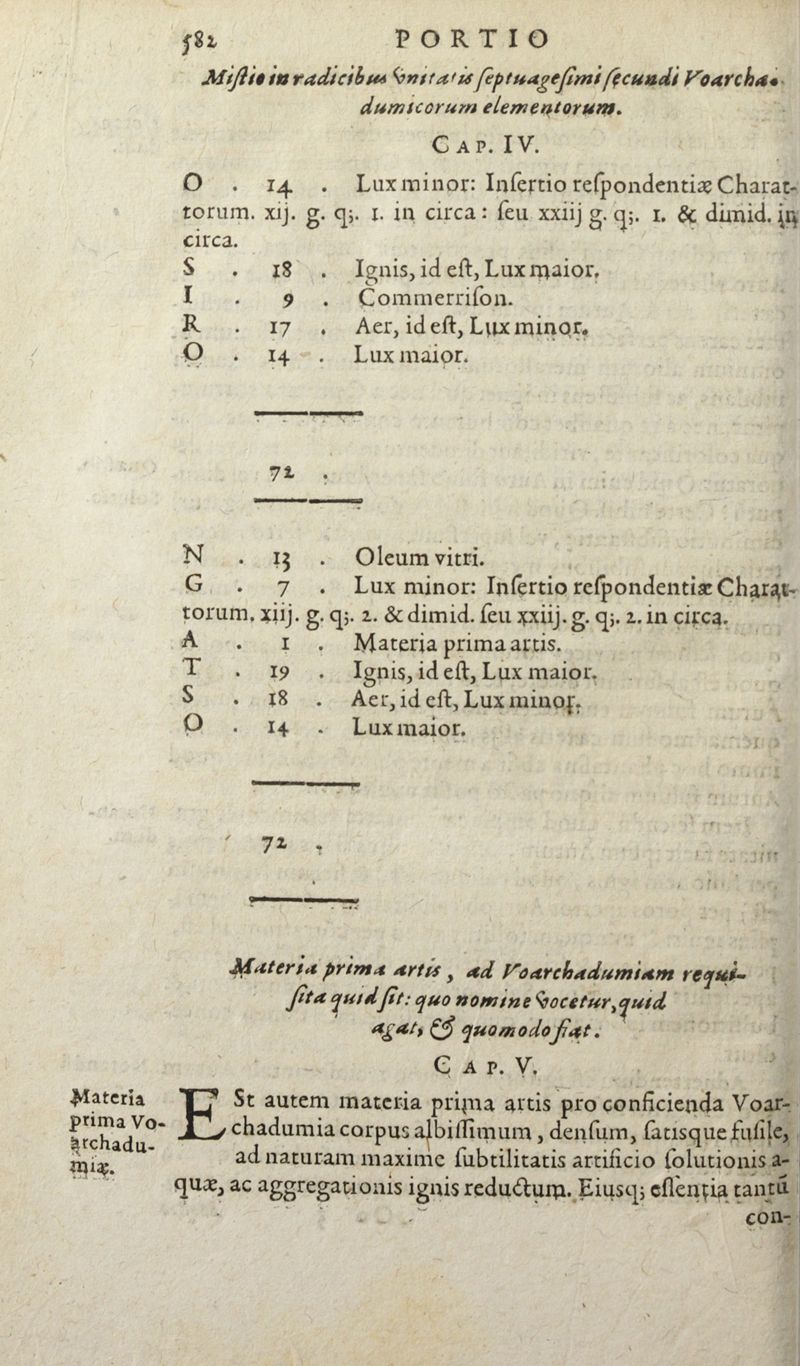 582 PORTIO
Miſtio in radicibus vnitatis ſeptuageſimi ſecundi Voarcha-
dumicorum elementorum.
CAP. IV.
O . 14 . Lux minor: Inſertio reſpondentiæ Charat-
torum. xij. g. q;. 1. in circa: ſeu xxiij g. q;. 1. & dimid. in
circa.
S . 18 . Ignis, id eſt, Lux maior.
I . 9 . Commerriſon.
R . 17 . Aer, id eſt, Lux minor.
O . 14 . Lux maior.
72 .
N . 13 . Oleum vitri.
G . 7 . Lux minor: Inſertio reſpondentiæ Charat-
torum. xiij. g. q;. 2. & dimid. ſeu xxiij. g. q;. 2. in circa.
A . 1 . Materia prima artis.
T . 19 . Ignis, id eſt, Lux maior.
S . 18 . Aer, id eſt, Lux minor.
O . 14 . Lux maior.
72 .
Materia prima artis, ad Voarchadumiam requi-
ſita quid ſit: quo nomine vocetur, quid
agat, & quomodo fiat.
CAP. V.
Materia
prima Vo-
archadu-
miæ.
ESt autem materia prima artis pro conficienda Voar-
chadumia corpus albiſſimum, denſum, ſatisque fuſile,
ad naturam maxime ſubtilitatis artificio ſolutionis a-
quæ, ac aggregationis ignis reductum. Eiusq; eſſentia tantū
con-